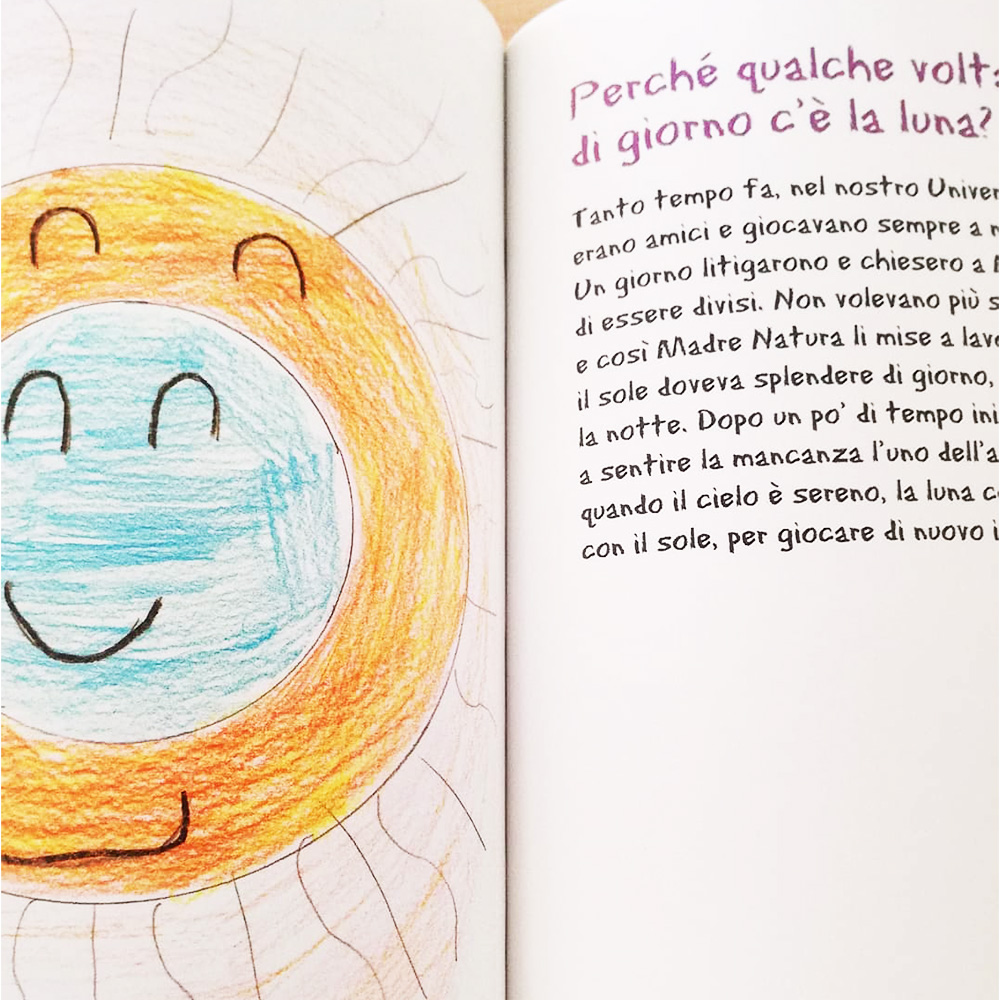 Perché qualche volta
di giorno c'è la luna?
Tanto tempo fa, nel nostro
erano amici e giocavano sempre a
Un giorno litigarono e chiesero a
di essere divisi. Non volevano più
e così Madre Natura li mise a
il sole doveva splendere di giorno,
la notte. Dopo un po' di tempo
a sentire la mancanza l'uno
quando il cielo è sereno, la luna
con il sole, per giocare di nuovo